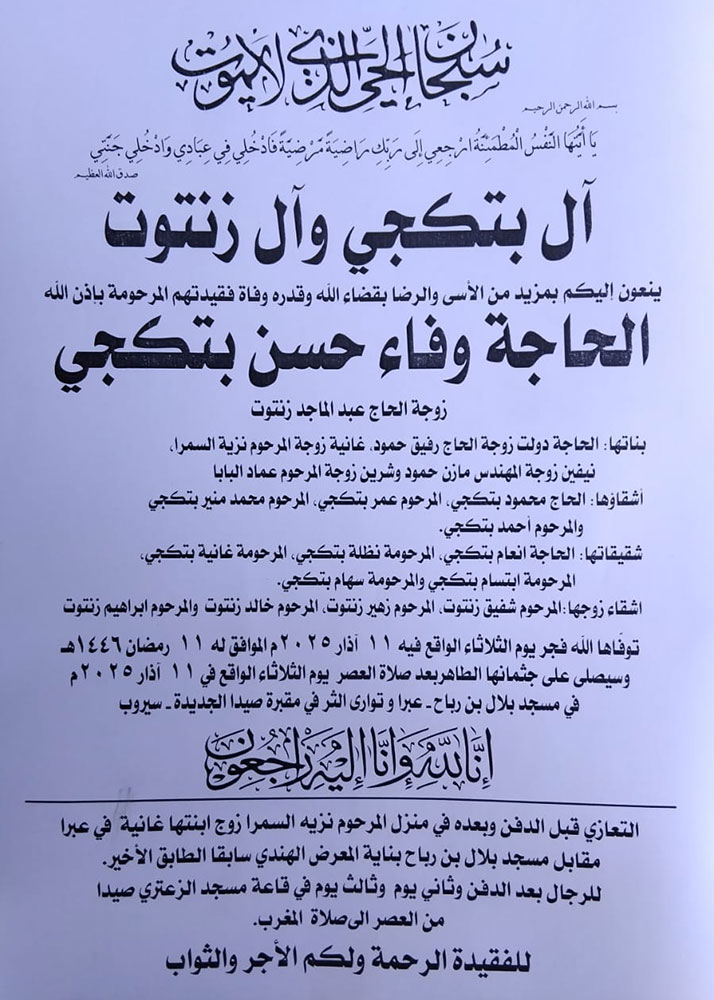 سبحان الحي الذي لا يموت
بسم الله الرحمن الرحيم
يَا أَيَّتُهَا النَّفْسُ الْمُطْمَئِنَّةُ ارْجِعِي إِلَى رَبِّكِ رَاضِيَةً مَّرْضِيَّةً فَادْخُلِي فِي عِبَادِي وَادْخُلِي جَنَّتِي
صدق الله العظيم
آل بتكجي وآل زنتوت
ينعون إليكم بمزيد من الأسى والرضا بقضاء الله وقدره وفاة فقيدتهم المرحومة بإذن الله
الحاجة وفاء حسن بتكجي
زوجة الحاج عبد الماجد زنتوت
بناتها: الحاجة دولت زوجة الحاج رفيق حمود، غانية زوجة المرحوم نزية السمرا،
نيفين زوجة المهندس مازن حمود وشرين زوجة المرحوم عماد البابا
أشقاؤها: الحاج محمود بتكجي، المرحوم عمر بتكجي، المرحوم محمد منير بتكجي
والمرحوم أحمد بتكجي.
شقيقاتها: الحاجة انعام بتكجي، المرحومة نظلة بتكجي، المرحومة غانية بتكجي،
المرحومة ابتسام بتكجي والمرحومة سهام بتكجي.
اشقاء زوجها:المرحوم شفيق زنتوت، المرحوم زهير زنتوت، المرحوم خالد زنتوت والمرحوم ابراهيم زنتوت
توفّاها الله فجر يوم الثلاثاء الواقع فيه ١١ آذار ٢٠٢٥ م الموافق له ١١ رمضان ١٤٤٦هـ
وسيصلى على جثمانها الطاهربعد صلاة العصر يوم الثلاثاء الواقع في ١١ آذار ٢٠٢٥ م
في مسجد بلال بن رباح ـ عبرا و توارى الثر في مقبرة صيدا الجديدة ـ سيروب
إنا لله وإنا إليه راجعون
التعازي قبل الدفن وبعده في منزل المرحوم نزيه السمرا زوج ابنتها غانية في عبرا
مقابل مسجد بلال بن رباح بناية المعرض الهندي سابقا الطابق الأخير.
للرجال بعد الدفن وثاني يوم وثالث يوم في قاعة مسجد الزعتري صيدا
من العصر الى صلاة المغرب.
للفقيدة الرحمة ولكم الأجر والثواب